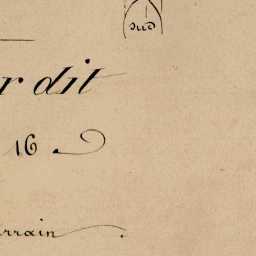 sud
r dit
16
errain